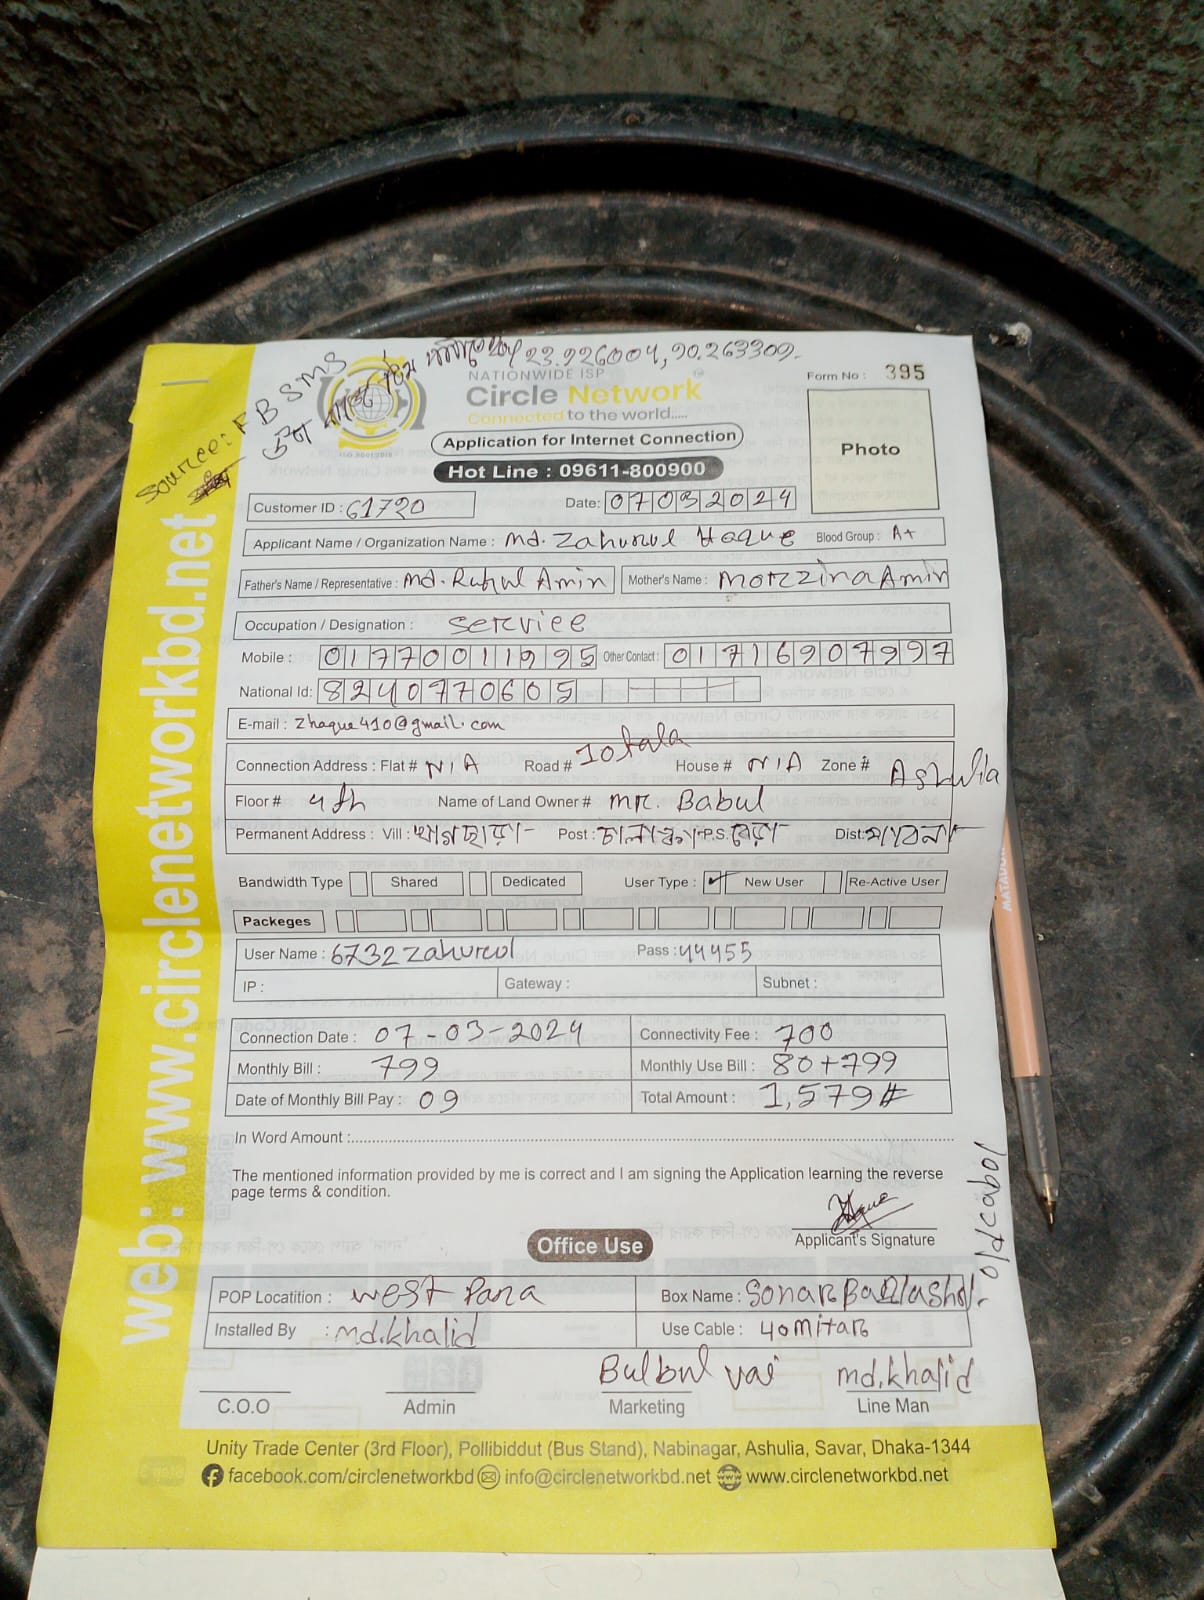 Source: FB SMS
23.926004, 90.263309-
NATIONWIDE ISP
Circle Network
Connected to the world.....
Form No : 395
Application for Internet Connection
Photo
Hot Line : 09611-800900
Customer ID : 61720 Date: 07032024
Applicant Name / Organization Name : Md. Zahurul Haque Blood Group : A+
Father's Name / Representative : Md. Ruhul Amin Mother's Name : Morzzina Amin
Occupation / Designation : Service
Mobile : 01770011995 Other Contact : 01716907997
National Id: 8240770605
E-mail : zhaque410@gmail.com
Connection Address : Flat # N/A Road # 10 tala House # N/A Zone # Ashulia
Floor # 4th Name of Land Owner # MR. Babul
Permanent Address : Vill : Post : P.S. বেড়া Dist: পাবনা
Bandwidth Type Shared Dedicated User Type : ✓ New User Re-Active User
Packeges
User Name : 6732zahurul Pass : 44455
IP : Gateway : Subnet :
Connection Date : 07-03-2024 Connectivity Fee : 700
Monthly Bill : 799 Monthly Use Bill : 80+799
Date of Monthly Bill Pay : 09 Total Amount : 1,579
In Word Amount :
The mentioned information provided by me is correct and I am signing the Application learning the reverse
page terms & condition.
Applicant's Signature
old cabol
Office Use
POP Locatition : West Para Box Name :
Installed By : md.khalid Use Cable : 40 mitar
Bulbul vai md.khalid
C.O.O Admin Marketing Line Man
Unity Trade Center (3rd Floor), Pollibiddut (Bus Stand), Nabinagar, Ashulia, Savar, Dhaka-1344
facebook.com/circlenetworkbd info@circlenetworkbd.net www.circlenetworkbd.net
web: www.circlenetworkbd.net
MATADOR